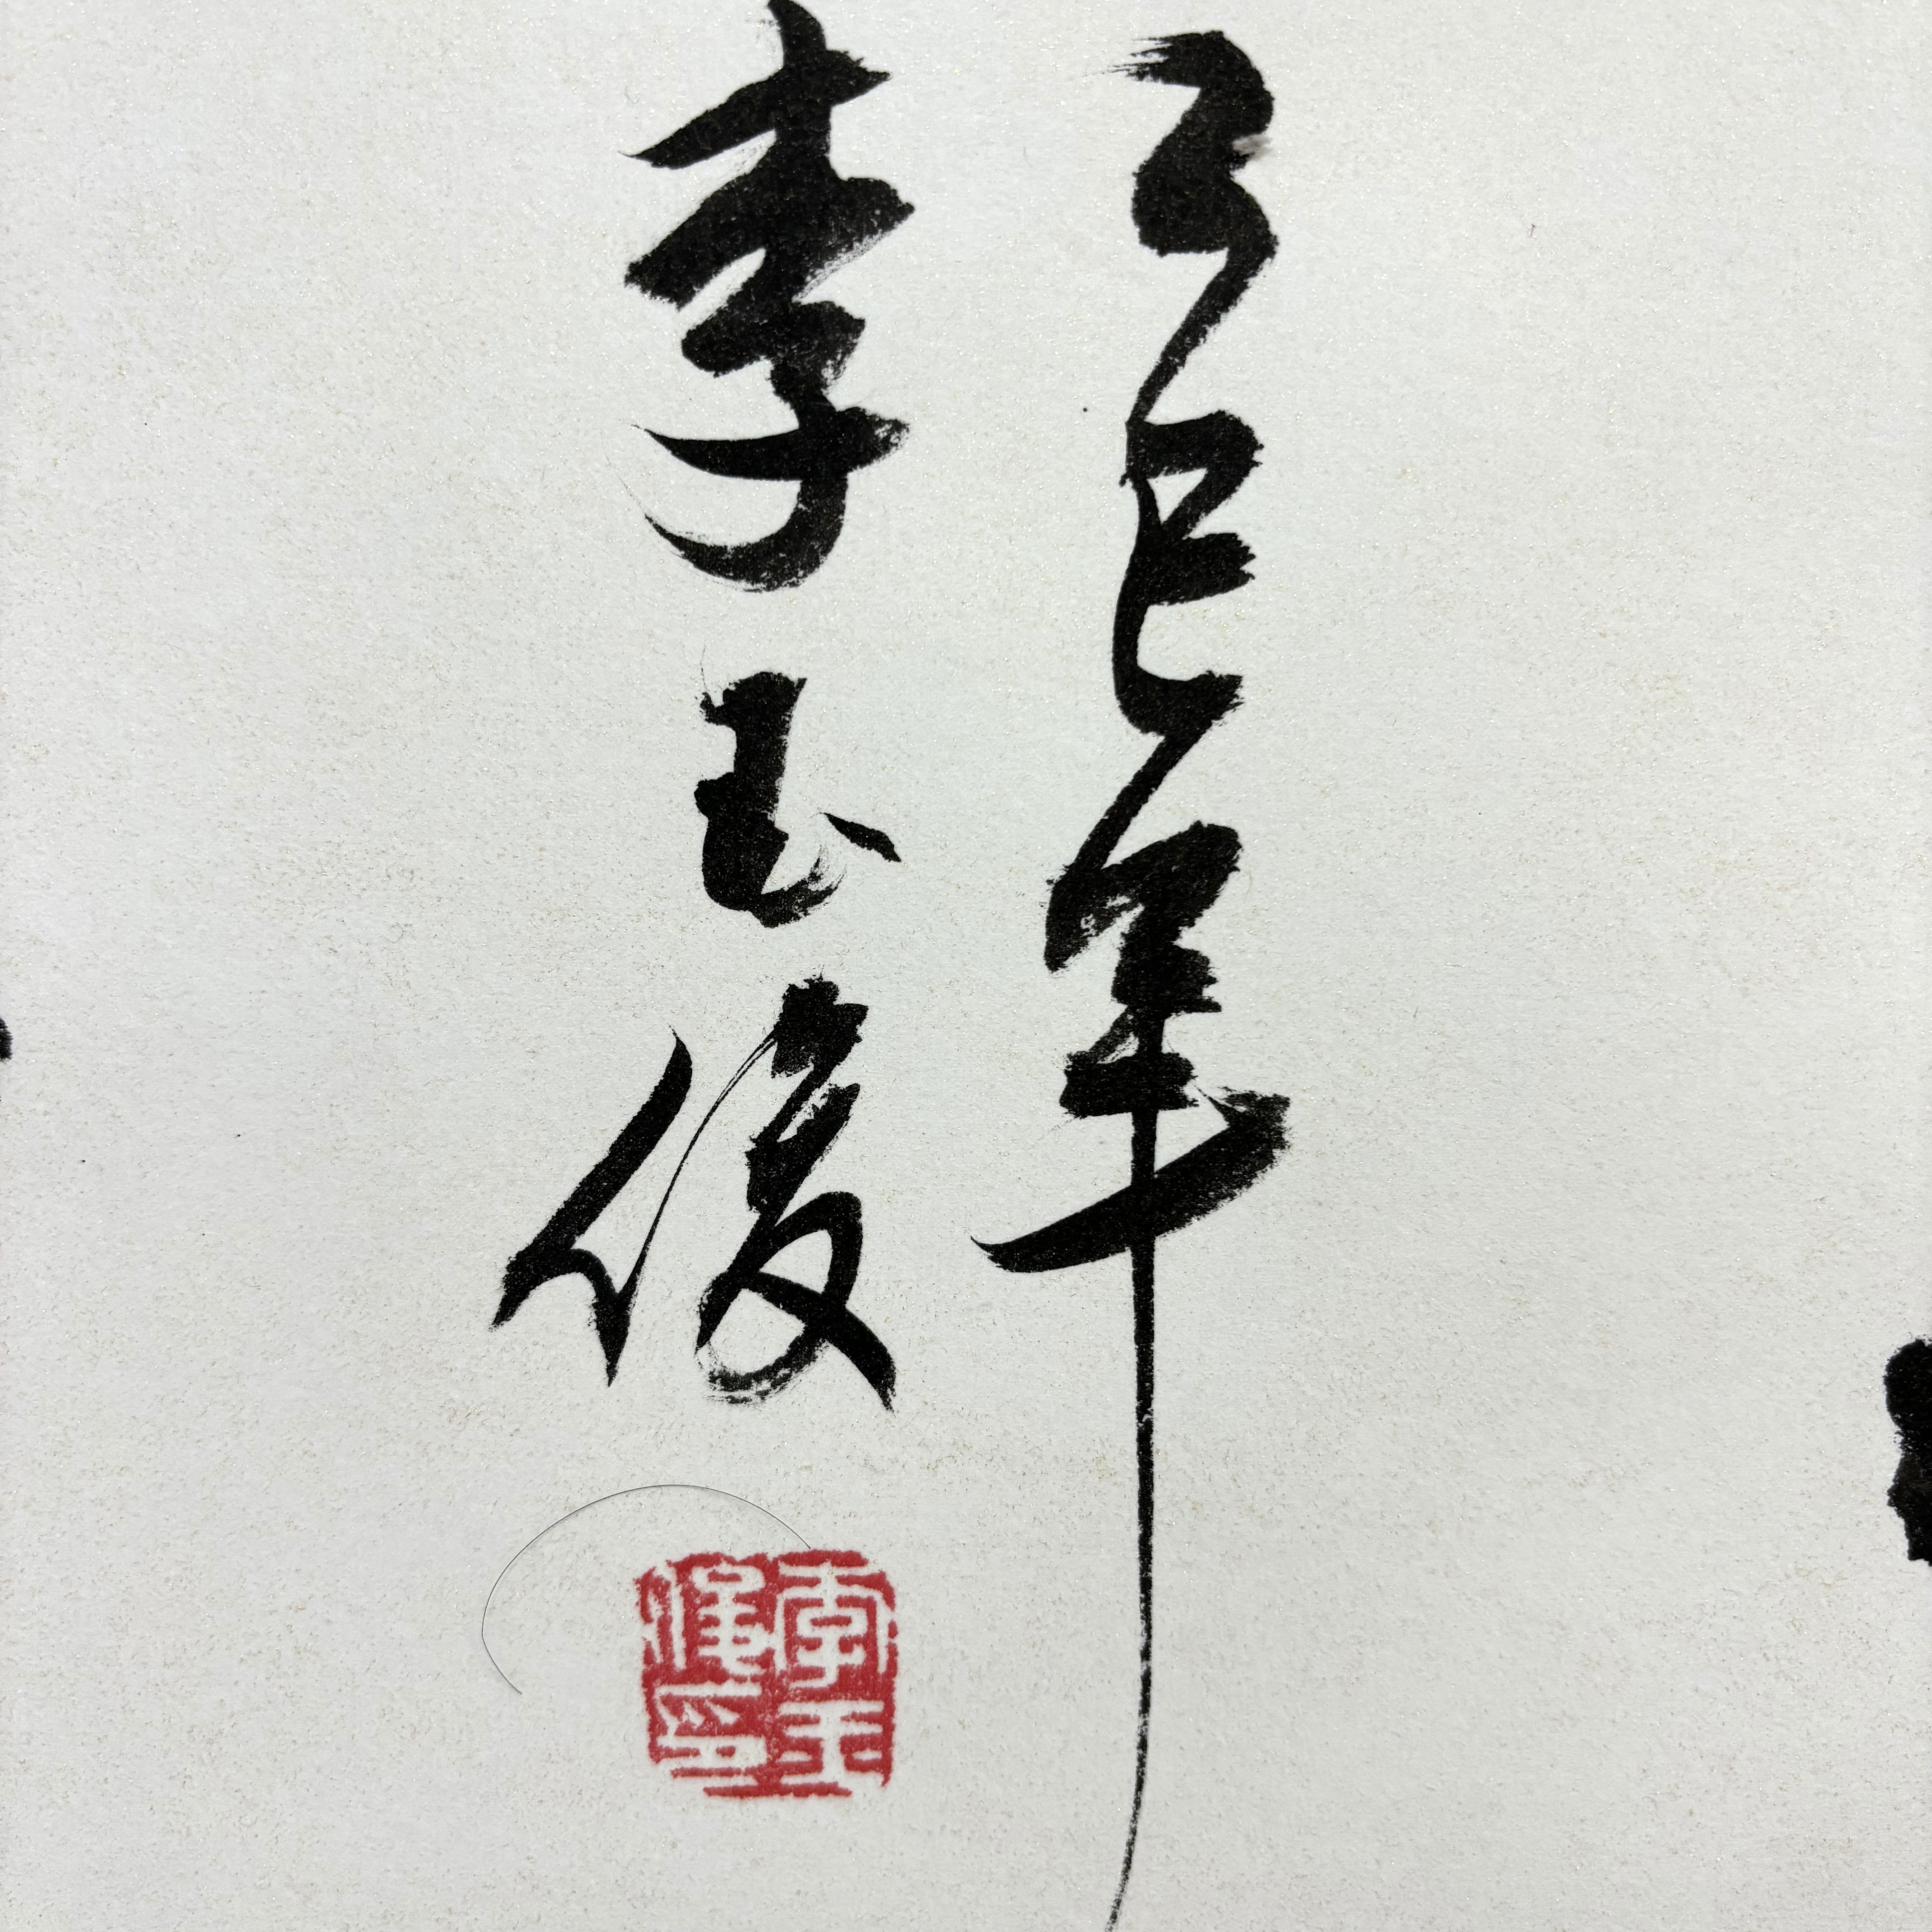 乙巳年
李玉俊
李玉
俊印